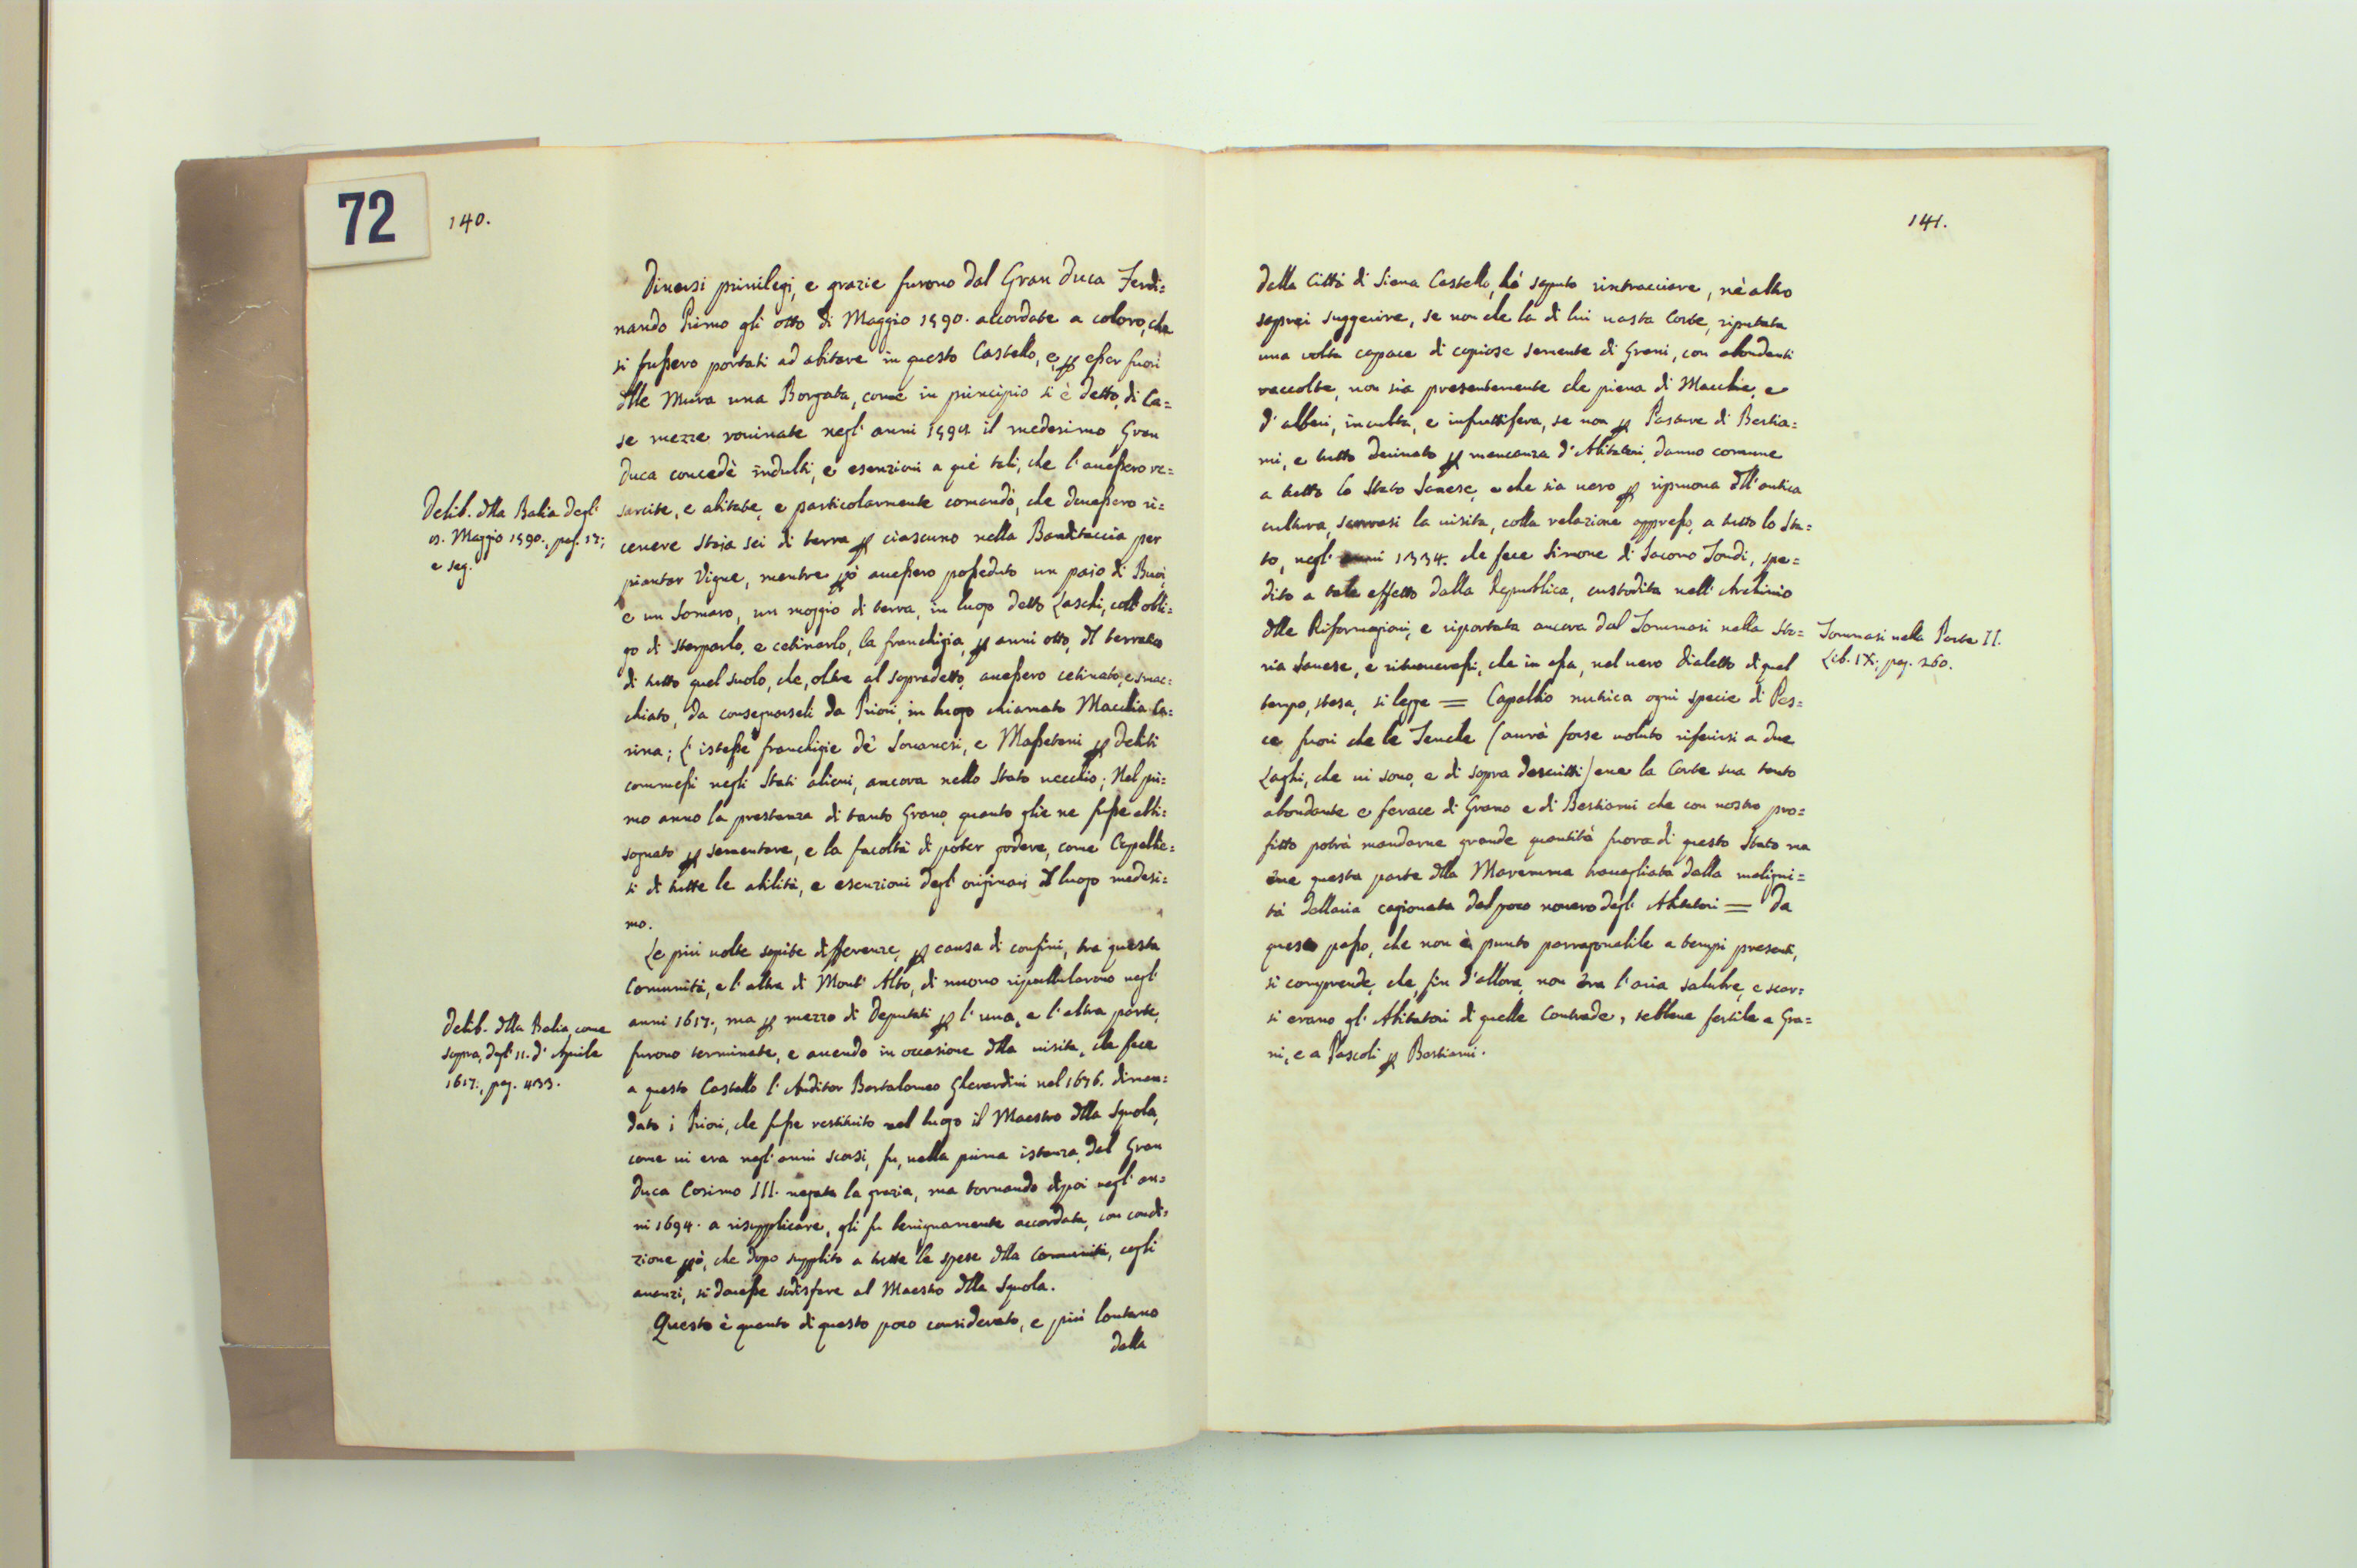 72
140.
Diuersi priuilegi, e grazie furono dal Gran Duca Ferdi=
nando Primo gli otto di Maggio 1590. accordate a coloro, che
si fussero portati ad abitare in questo Castello, e, p esser fuori
dlle Mura una Borgata, come in principio si è detto, di Ca=
se mezze rouinate negl' anni il medesimo Gran
Duca concedè indulti, e esenzioni a què tali, che l'auessero re=
sarcite, e abitate, e particolarmente comandò, che douessero ri=
ceuere staja sei di terra p ciascuno nella Banditaccia per
piantar Vigne, mentre pò auessero posseduto un paio di Buoi,
e un Somaro, un moggio di terra, in luogo detto Laschi, coll' obli=
go di sterparlo, e cetinarlo, la franchigia, p anni otto, dl terratico
di tutto quel suolo, che, oltre al sopradetto, auessero cetinato, e smac=
chiato, da consegnarseli da Priori, in luogo chiamato Macchia Ca=
rina; L'istesse franchigie dè Souanesi, e Massetani p delitti
commessi negli Stati alieni, ancora nello Stato uecchio; Nel pri=
mo anno la prestanza di tanto Grano, quanto glie ne fusse abbi=
sognato p sementare, e la facoltà di poter godere, come Capalbie=
si di tutte le abilità, e esenzioni degl' originarj dl luogo medesi=
mo.
Le più uolte sopite differenze, p causa di confini, tra questa
Comunità, e l'altra di Mont' Alto, di nuouo ripullularono negl'
anni 1617., ma p mezzo di Deputati p l'una, e l'altra parte,
furono terminate, e auendo in occasione dlla uisita, che fece
a questo Castello l'Auditor Bartolomeo Gherardini nel 1676. diman=
dato i Priori, che fusse restituito nel luogo il Maestro dlla Squola,
come ui era negl' anni scorsi, fu, nella prima istanza, dal Gran
Duca Cosimo III. negata la grazia, ma tornando dipoi negl' an=
ni 1694. a risupplicare, gli fu benignamente accordata, con condi=
zione pò, che dopo supplito a tutte le spese dlla Comunità, cogli
auanzi, si douesse sodisfare al Maestro dlla Squola.
Questo è quanto di questo poco considerato, e più lontano
della
Delib. dlla Balia degl'
Maggio 1590., pag. 17;
e seg.
Delib. dlla Balia, come
sopra, degl' 11. d' Aprile
1617:, pag. 433.
141.
della Città di Siena Castello, hò saputo rintracciare, nè altro
saprei suggerire, se non che la di lui uasta Corte, riputata
una uolta capace di copiose semente di Grani, con abondanti
raccolte, non sia presentemente che piena di Macchie, e
d'alberi, inculta, e infruttifera, se non p Pasture di Bestia=
mi, e tutto deriuato p mancanza d'Abitatori, danno comune
a tutto lo Stato Sanese, e che sia uero p ripruoua dll' antica
cultura, seruasi la uisita, colla relazione appresso, a tutto lo Sta=
to, negl' anni 1334. che fece Simone di Iacomo Tondi, spe=
dito a tale effetto dalla Republica, custodita nell' Archiuio
dlle Riformagioni, e riportata ancora dal Tommasi nella Sto=
ria Sanese, e ritrouerassi, che in essa, nel uero dialetto di quel
tempo, stesa, si legge = Capalbio nutrica ogni specie di Pes=
ce fuori che le Tenche (aurà forse uoluto riferirsi a due
Laghi, che ui sono, e di sopra descritti) ene la Corte sua tanto
abondante e ferace di Grano e di Bestiami che con nostro pro=
fitto potrà mandarne grande quantità fuora di questo Stato ma
ène questa parte dlla Maremma trauagliata dalla maligni=
tà dellaria cagionata dal poco nouero degl' Abitatori = Da
questo passo, che non è punto parragonabile a tempi presenti,
si comprende, che, fin d'allora, non èra l'aria salubre, e scar=
si erano gl' Abitatori di quelle Contrade, sebbene fertile a Gra=
ni, e a Pascoli p Bestiami.
Tommasi nella Parte II.
Lib. IX:, pag. 260.